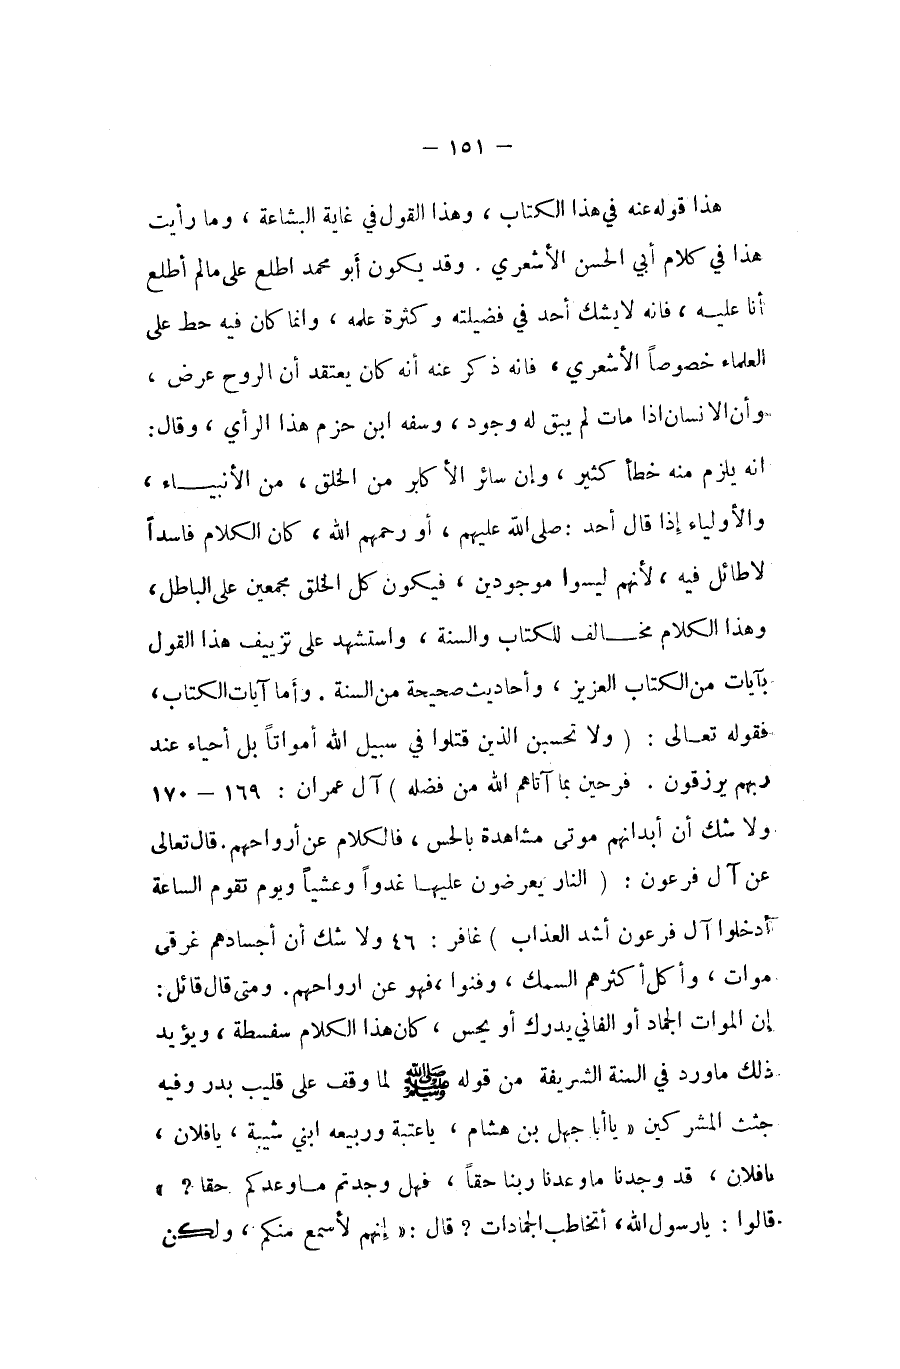 — ١٥١ —
هذا قوله عنه في هذا الكتاب ، وهذا القول في غاية البشاعة ، وما رأيت
هذا في كلام أبي الحسن الأشعري . وقد يكون أبو محمد اطلع على مالم أطلع
أنا عليه ، فانه لايشك أحد في فضيلته وكثرة علمه ، وانما كان فيه حط على
العلماء خصوصاً الأشعري ، فانه ذكر عنه أنه كان يعتقد أن الروح عرض ،
وأن الانسان اذا مات لم يبق له وجود ، وسفه ابن حزم هذا الرأي ، وقال :
انه يلزم منه خطأ كثير ، وإن سائر الأكابر من الخلق ، من الأنبيــاء ،
والأولياء إذا قال أحد : صلى الله عليهم ، أو رحمهم الله ، كان الكلام فاسداً
لاطائل فيه ، لأنهم ليسوا موجودين ، فيكون كل الخلق مجمعين على الباطل ،
وهذا الكلام مخــالف للكتاب والسنة ، واستشهد على تزييف هذا القول
بآيات من الكتاب العزيز ، وأحاديث صحيحة من السنة . وأما آيات الكتاب ،
فقوله تعـالى : ( ولا تحسبن الذين قتلوا في سبيل الله أمواتاً بل أحياء عند
ربهم يرزقون . فرحين بما آتاهم الله من فضله ) آل عمران : ١٦٩ – ١٧٠
ولا شك أن أبدانهم موتى مشاهدة بالحس ، فالكلام عن أرواحهم . قال تعالى
عن آل فرعون : ( النار يعرضون عليهـا غدواً وعشياً ويوم تقوم الساعة
أدخلوا آل فرعون أشد العذاب ) غافر : ٤٦ ولا شك أن أجسادهم غرقى
موات ، وأكل أكثرهم السمك ، وفنوا ، فهو عن ارواحهم . ومتى قال قائل :
إن الموات الجماد أو الفاني يدرك أو يحس ، كان هذا الكلام سفسطة ، ويؤيد
ذلك ماورد في السنة الشريفة من قوله ﷺ لما وقف على قليب بدر وفيه
جثث المشركين « ياأبا جهل بن هشام ، ياعتبة وربيعه ابني شيبة ، يافلان ،
يافلان ، قد وجدنا ماوعدنا ربنا حقاً ، فهل وجدتم مـاوعدكم حقا ? »
قالوا : يارسول الله ، أتخاطب الجمادات ? قال : « إنهم لأسمع منكم ، ولكن